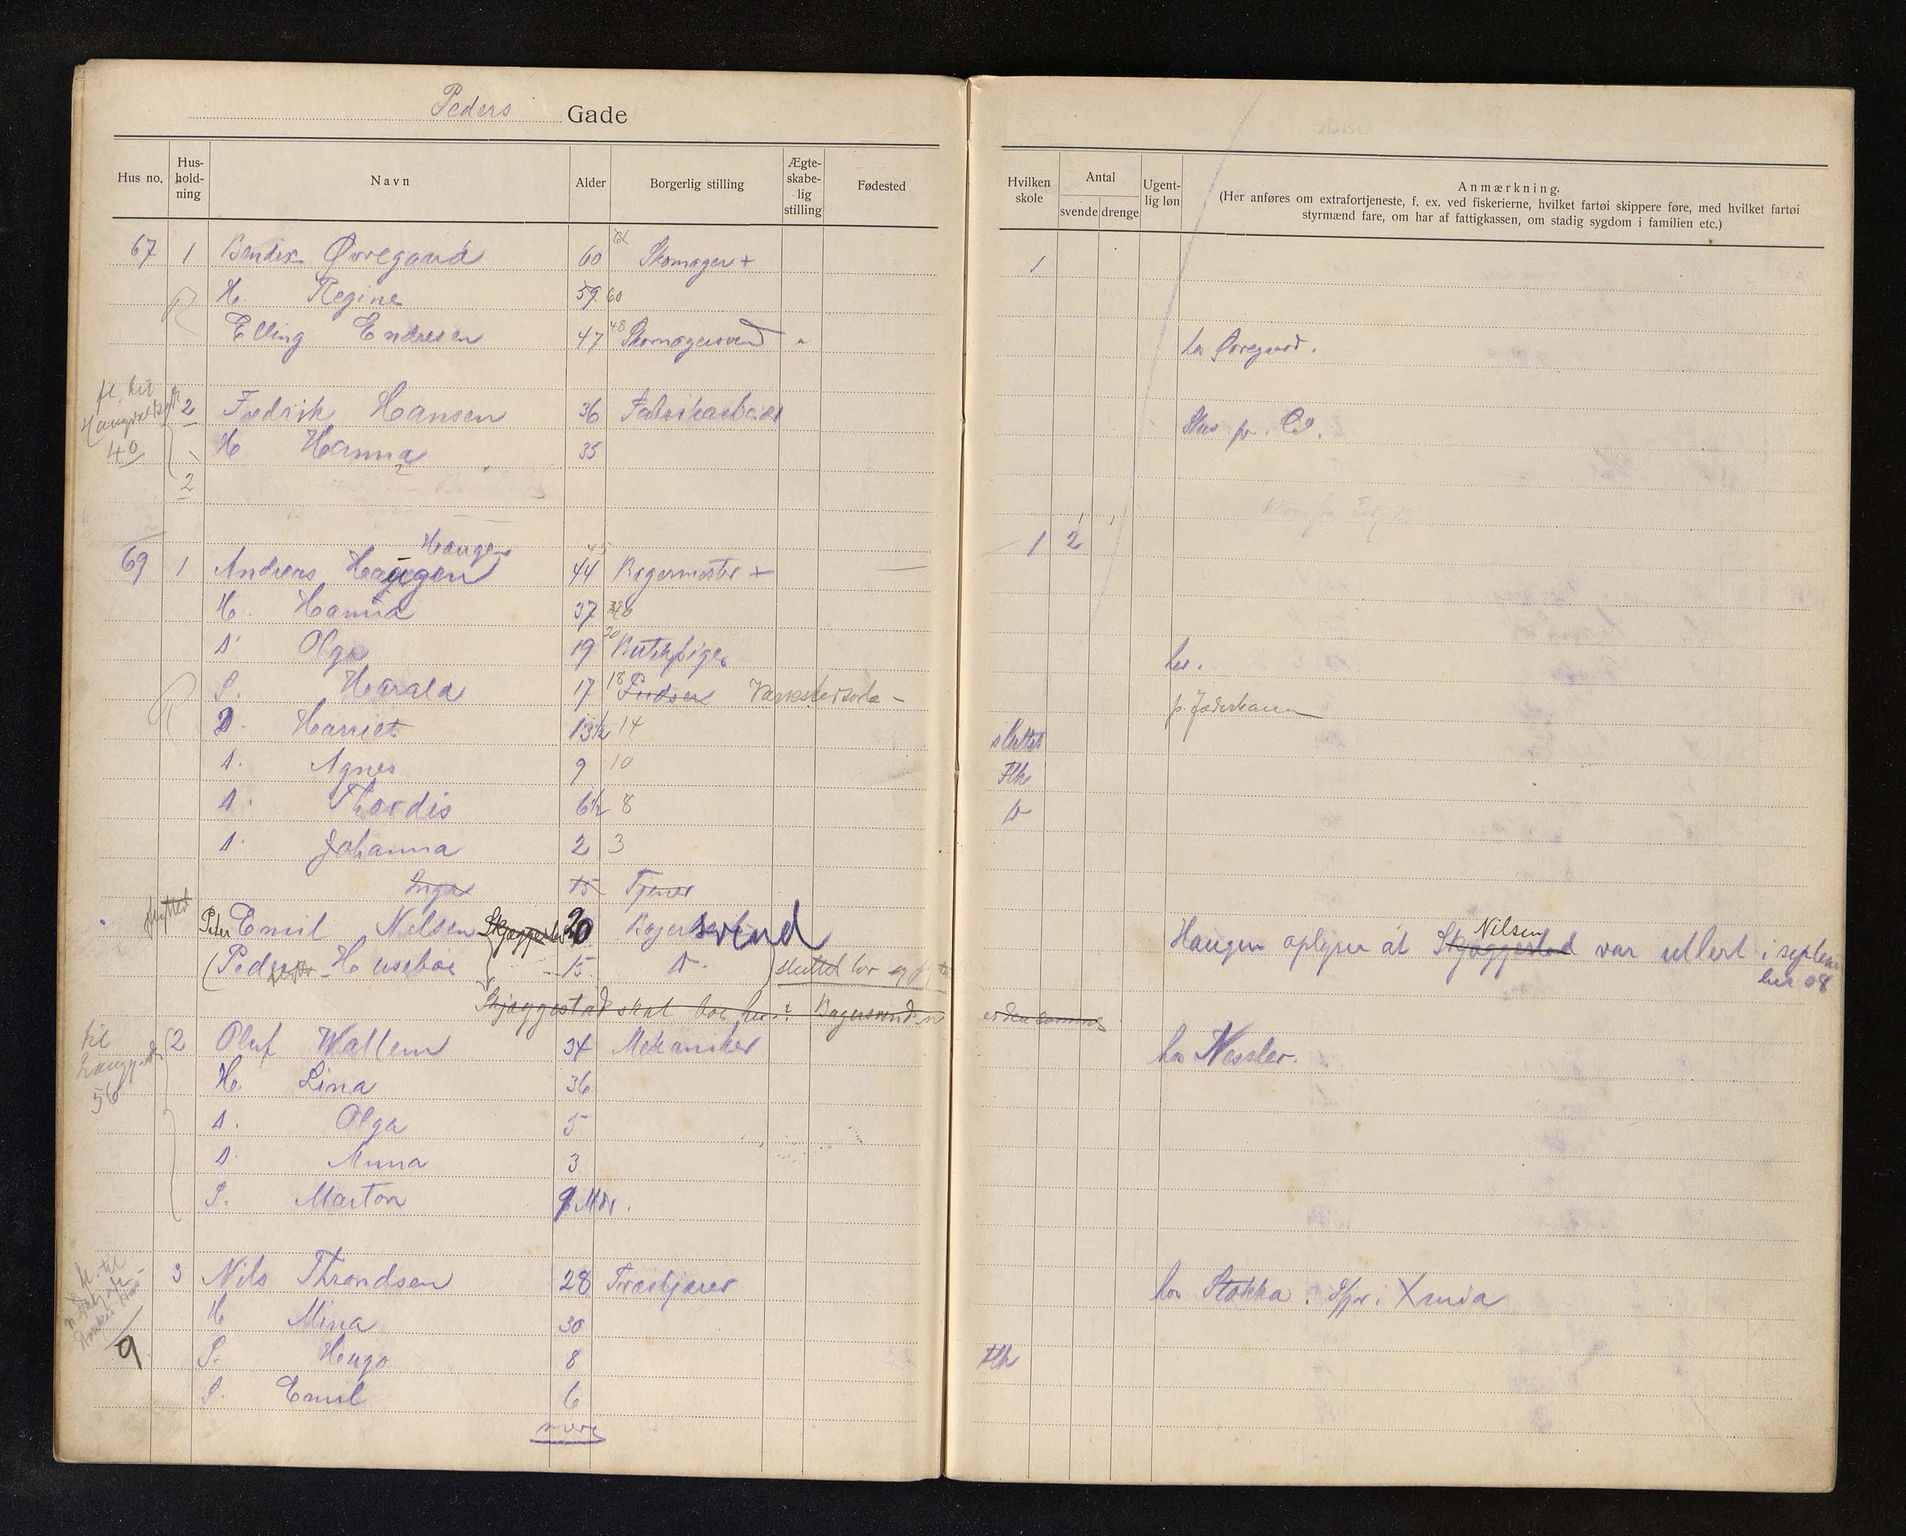 Peders Gade
Hus no.
Hus-
hold-
ning
Navn
Alder
Borgerlig stilling
Ægte-
skabe-
lig
stilling
Fødested
67 1 Bendix Øvregaard 60 61 Skomager +
H. Regine 59 60
Elling Endresen 47 48 Skomagersvend
fl. til
40
2 Fredrik Hansen 36 Fabrikarbeider
H Hanna 35
2
Haugen
69 1 Andreas Haugen 44 45 Bagermester +
H. Hanna 37 38
D. Olga 19 20 Butikpige
S. Harald 17 18 Pudser
D. Harriet 13½ 14
D. Agnes 9 10
D. Thordis 6½ 8
D. Johanna 2 3
Inga 15 Tjener
flyttet
Peter Emil Nilsen Skjæggestad 20 Bagersvend
Peder Husebøe 15 D. sluttet her og
Skjæggestad skal bo her? Bagersvend
til
56
2 Oluf Wallem 34 Mekaniker
H. Lina 36
D. Olga 5
D. Anna 3
S. Marton 9 Mdr.
3 Nils Throndsen 28 Træskjærer
H Mina 30
S. Hugo 8
S. Emil 6
9
Hvilken
skole
Antal
svende drenge
Ugent-
lig løn
Anmærkning.
(Her anføres om extrafortjeneste, f. ex. ved fiskerierne, hvilket fartøi skippere føre, med hvilket fartøi
styrmænd fare, om har af fattigkassen, om stadig sygdom i familien etc.)
1
hos Øvregaard.
1 2
her.
sluttet
Flk
D
Nilsen
Haugen oplyser at Skjæggestad var utlert i septem
ber 08
hos Nessler.
hos Stokka. Xania
Flk